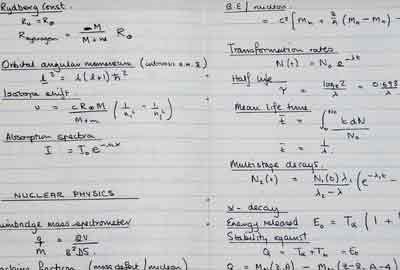 Rydberg Const.
R₀ = R∞
R_hydrogen = M / M+m R∞
Orbital angular momentum
l² = l(l+1)ħ²
Isotope shift.
ν = cR∞M / M+m (1/n₁² - 1/n₂²)
Absorption spectra
I = I₀e
NUCLEAR PHYSICS
mass spectrometer
q/m =
fraction (mass defect/nucleon)
B.E/nucleon
= c² [Mₙ + (Mₙ - Mₙ) -
Transformation rates.
N(t) = N₀e^-λt
Half life
τ = logₑ2 / λ = 0.693 / λ
Mean life time
t̄ = ∫₀^N₀ t dN / N₀
t̄ = 1/λ
Multistage decays.
N₂(t) = N₁(0)λ₁ / λ₂ - λ₁ (e^-λ₁t -
α - decay
Energy released E₀ = Tα (1 +
Stability against
Q = Tα + T = E₀
Q = M (Z,A) - M (Z-2, A-4)